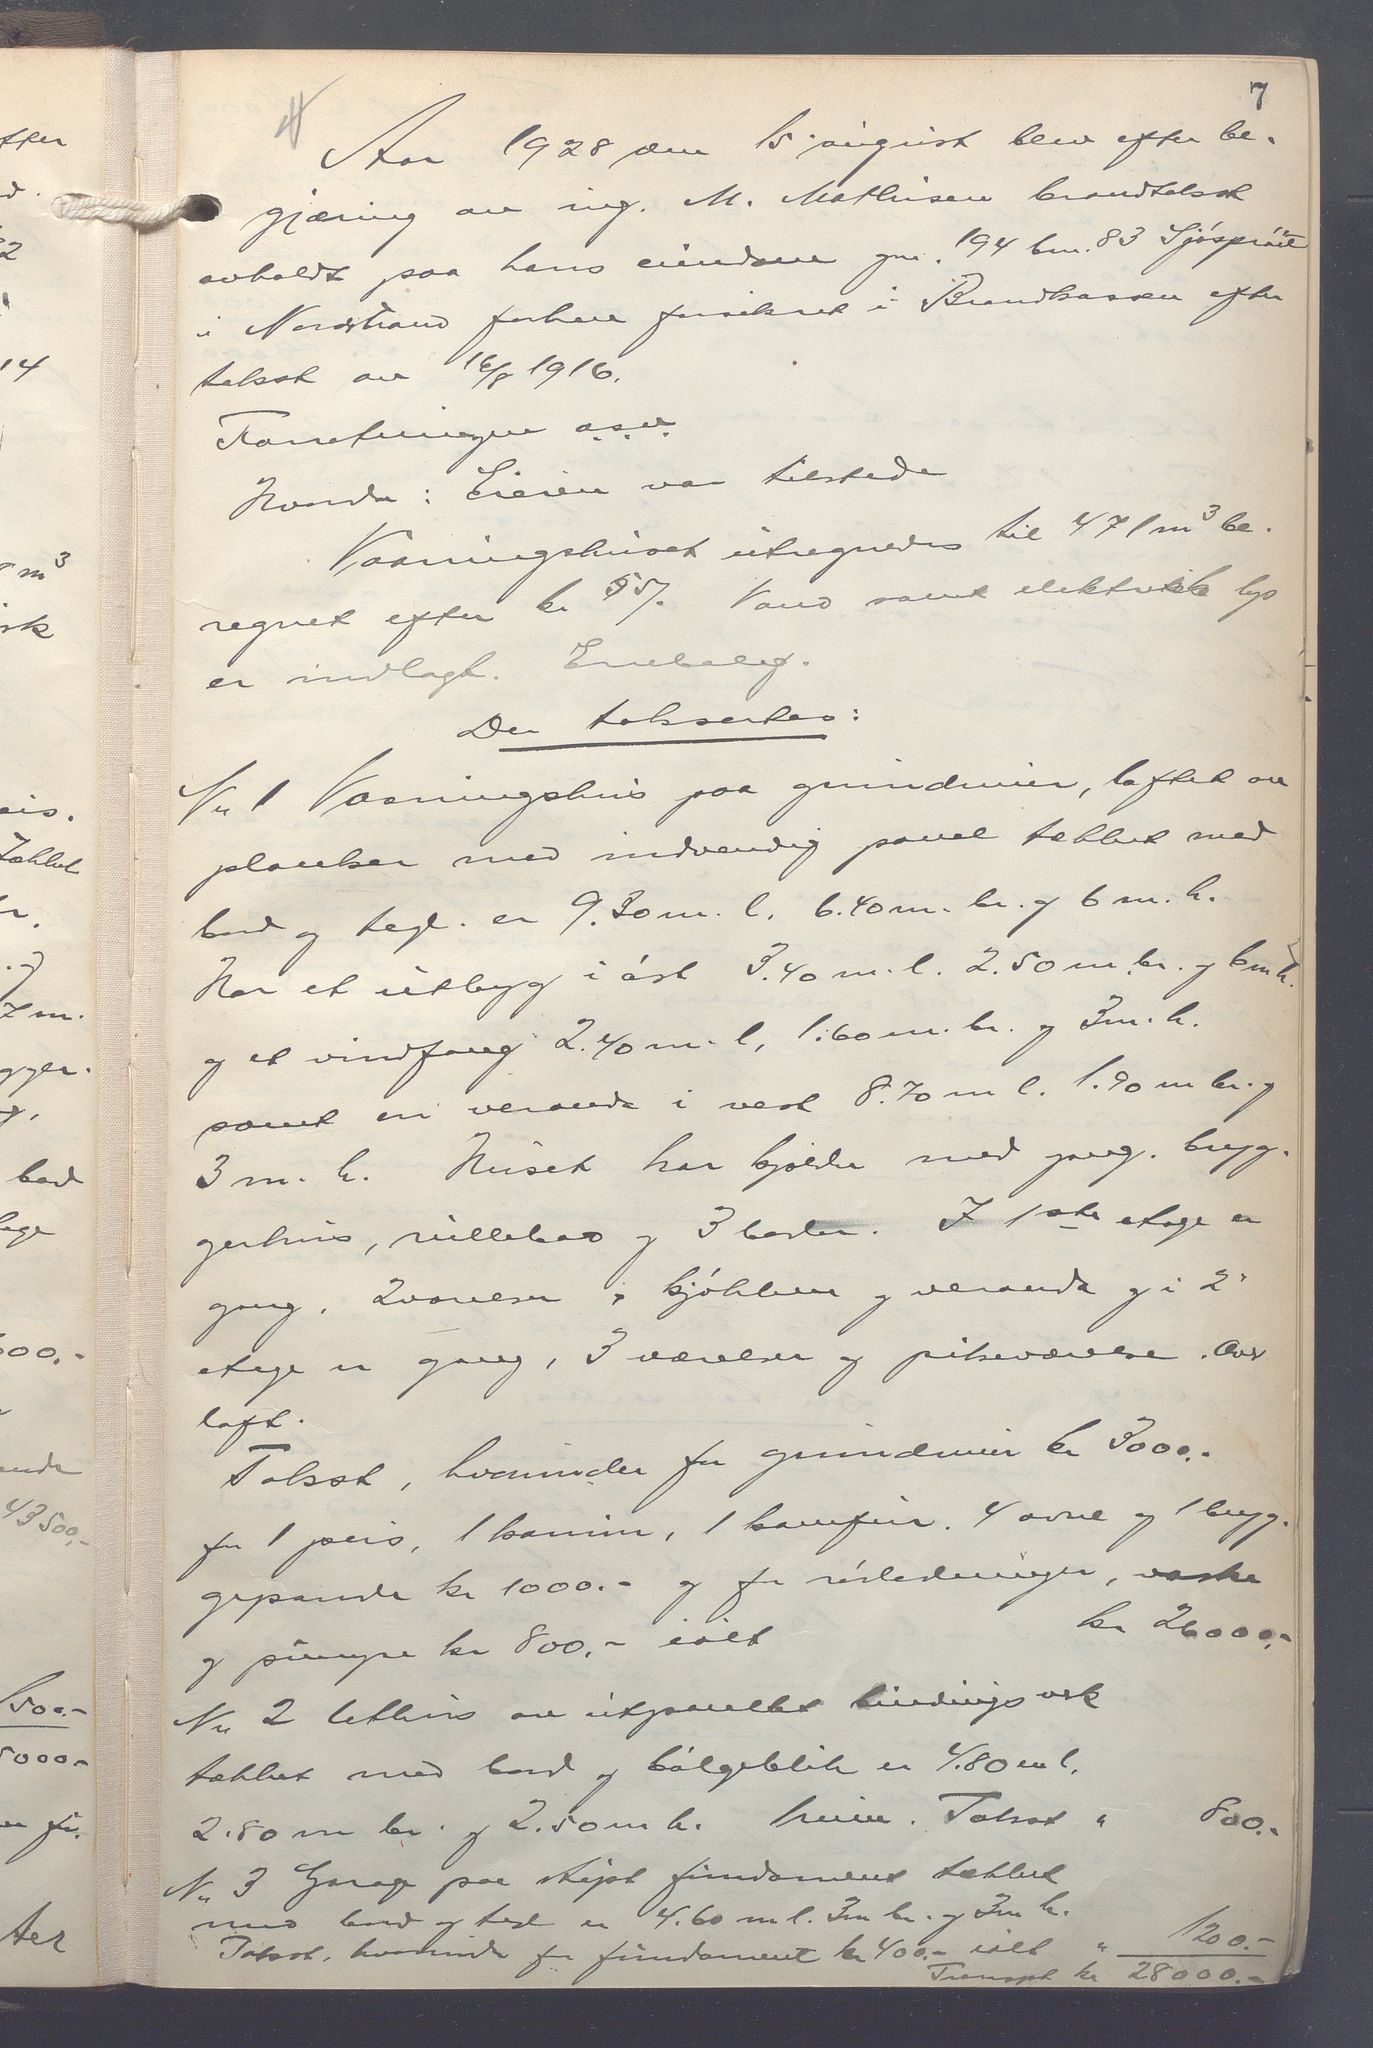 7
Aar 1928 den 15 august blev efter be-
gjæring av ing. M. Mathisen brandtakst
avholdt paa hans eiendom gnr. 194 bnr. 83 Sjösprøit
i Nordstrand forhen forsikret i Brandkassen efter
takst av 16/8 1916.
Forretningen o.s.v.
Hvorda: Eieren var tilstede
Vaaningshuset utregnedes til 471 m³ be-
regnet efter kr 55/. Vand samt elektrisk lys
er indlagt. Enebolig.
Der takseres:
Nr 1 Vaaningshus paa grundmur, laftet av
planker med indvendig panel tækket med
bord og tegl. er 9.30 m. l. 6.40 m. br. og 6 m. h.
Har et utbygg i öst 3.40 m. l. 2.50 m. br. og 6 m h.
og et vindfang 2.40 m. l, 1.60 m. br. og 3 m. h.
samt en veranda i vest 8.70 m l. 1.90 m br. og
3 m. h. Huset har kjelder med gang. bryg-
gerhus, rullebod og 3 boder. I 1ste etage er
gang, 2 værelser, kjökken og veranda og i 2'
etage er gang, 3 værelser og pikeværelse. Over
loft.
Takst, hvorunder for grundmur kr 3000.-
for 1 peis, 1 kamin, 1 komfur. 4 ovne og 1 bryg-
gepande kr 1000.- og for rörledninger, vaske
og pumpe kr 800.- ialt kr 26000.-
Nr 2 Uthus av utpanellet bindingsverk
tækket med bord og bölgeblik er 4.80 m l.
2.80 m br. og 2.50 m h. Takst " 800.-
Nr 3 Garage paa stöpt fundament tækket
med bord og tegl er 4.60 m l. 3 m br. og 3 m h.
Takst, hvorunder for fundament kr 400.- ialt " 1200.-
Transpt kr 28000.-